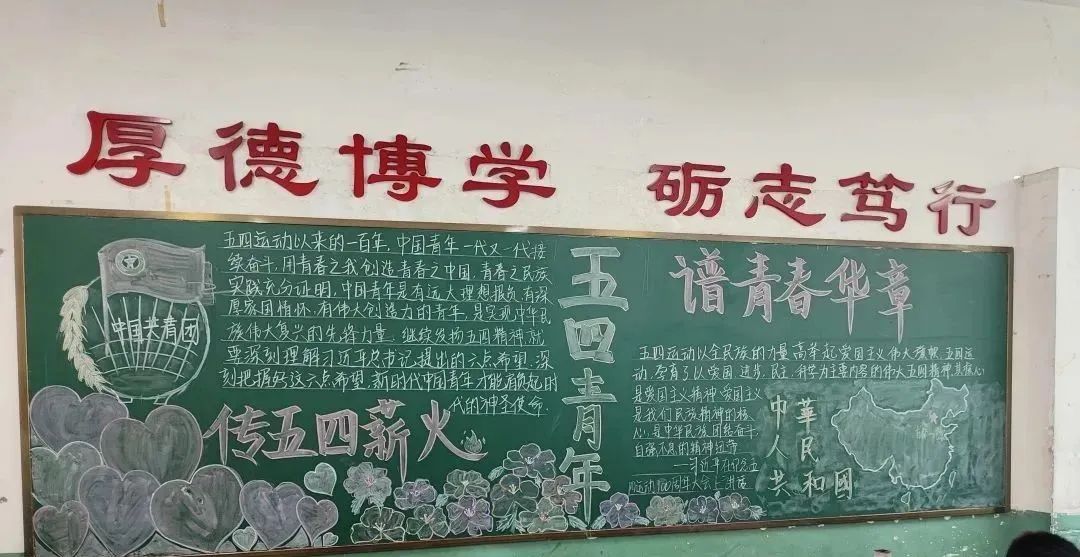 厚德博学 砺志笃行
中国共青团
五四运动以来的一百年,中国青年一代又一代接
续奋斗,用青春之我创造青春之中国,青春之民族
实践充分证明,中国青年是有远大理想抱负,有深
厚家国情怀,有伟大创造力的青年,是实现中华民
族伟大复兴的先锋力量,继续发扬五四精神就
要深刻理解习近平总书记提出的六点希望,深
刻把握好这六点希望,新时代中国青年才能肩负起时
代的神圣使命.
传五四薪火
五四青年
谱青春华章
五四运动以全民族的力量高举起爱国主义伟大旗帜,五四运
动,孕育了以爱国、进步、民主、科学为主要内容的伟大五四精神,其核心
是爱国主义精神,爱国主义
是我们民族精神的核
心,是中华民族团结奋斗,
自强不息的精神纽带
——习近平在纪念五
四运动100周年大会上讲话
中華
人民
共和國